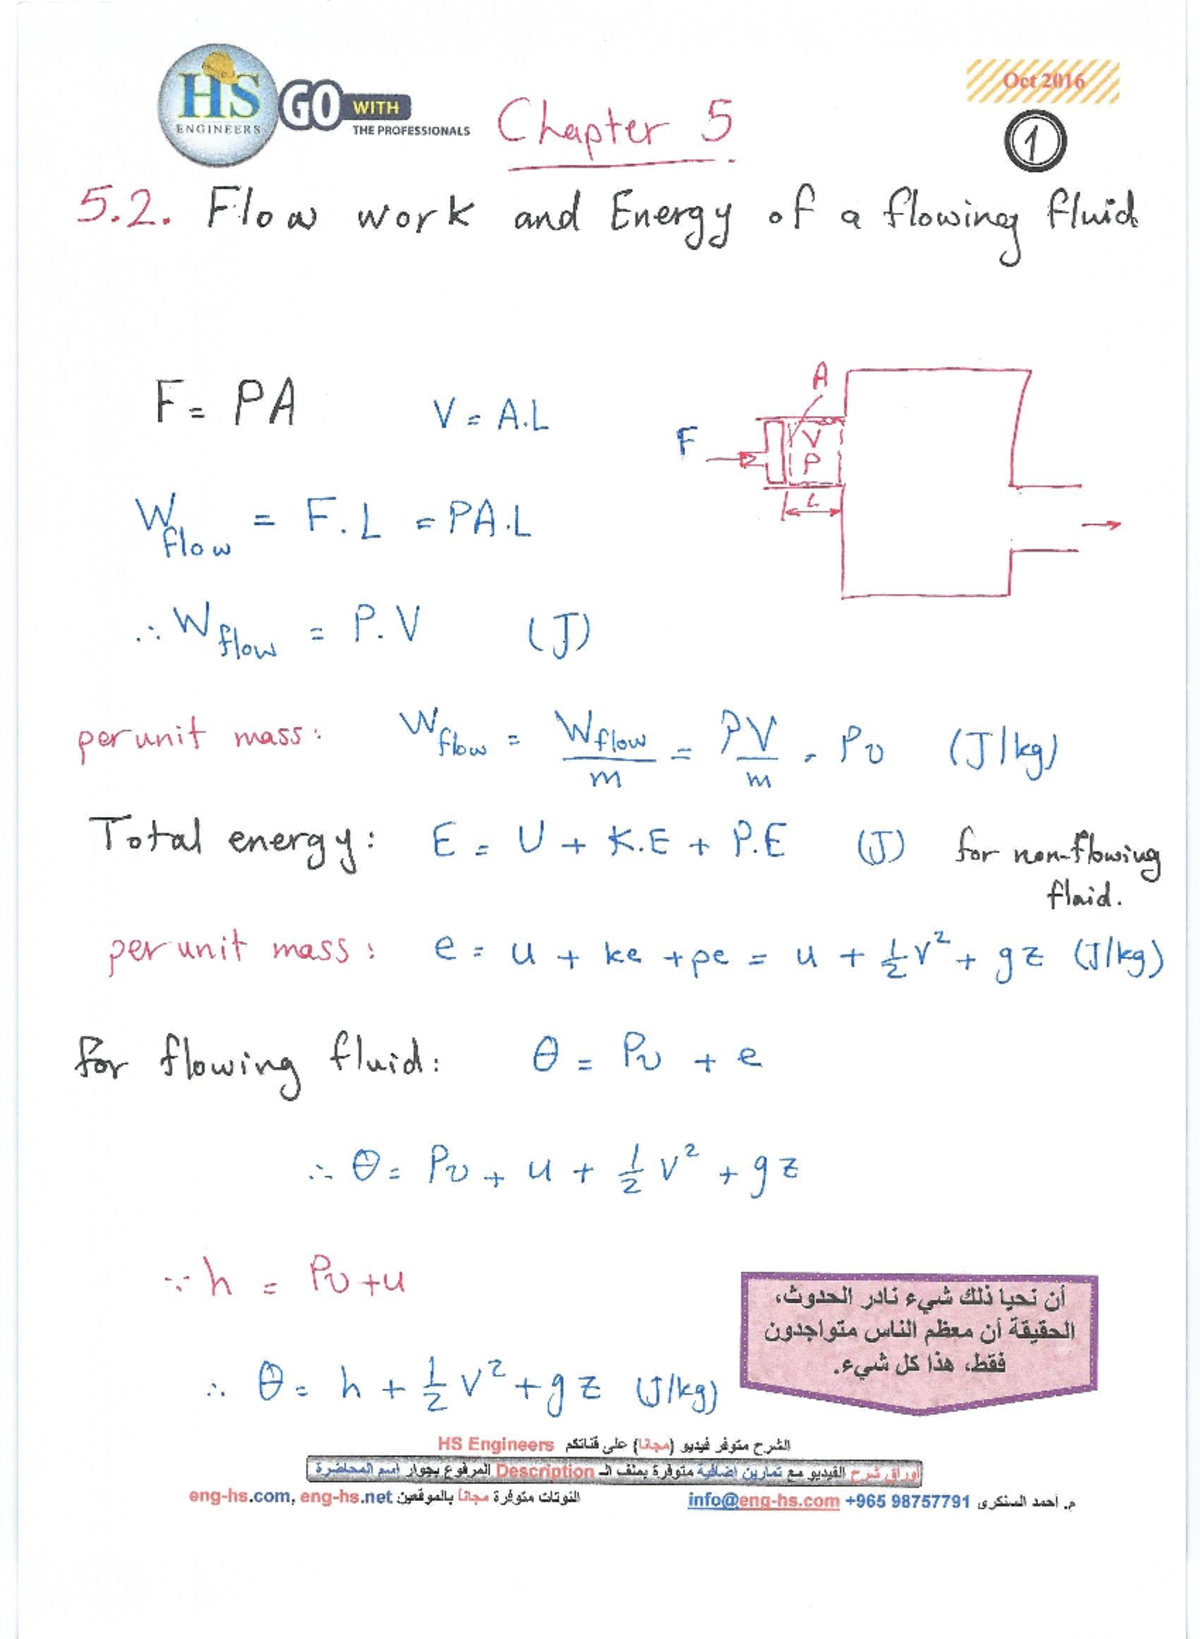 HS
ENGINEERS
GO WITH
THE PROFESSIONALS
Oct 2016
Chapter 5
1
5.2. Flow work and Energy of a flowing fluid
F = PA
V = A.L
A
F
V
P
L
W flow = F.L = PA.L
∴ W flow = P.V (J)
per unit mass: w flow = W flow / m = PV / m = Pv (J/kg)
Total energy: E = U + K.E + P.E (J) for non-flowing
fluid.
per unit mass: e = u + ke + pe = u + 1/2 V² + gz (J/kg)
for flowing fluid: θ = Pv + e
∴ θ = Pv + u + 1/2 V² + gz
∵ h = Pv + u
∴ θ = h + 1/2 V² + gz (J/kg)
أن نحيا ذلك شيء نادر الحدوث،
الحقيقة أن معظم الناس متواجدون
فقط، هذا كل شيء.
الشرح متوفر فيديو (مجانا) على قناتكم HS Engineers
أوراق شرح الفيديو مع تمارين إضافية متوفرة بملف الـ Description المرفوع بجوار اسم المحاضرة
النوتات متوفرة مجاناً بالموقعين eng-hs.com, eng-hs.net
م. أحمد السنكرى info@eng-hs.com +965 98757791